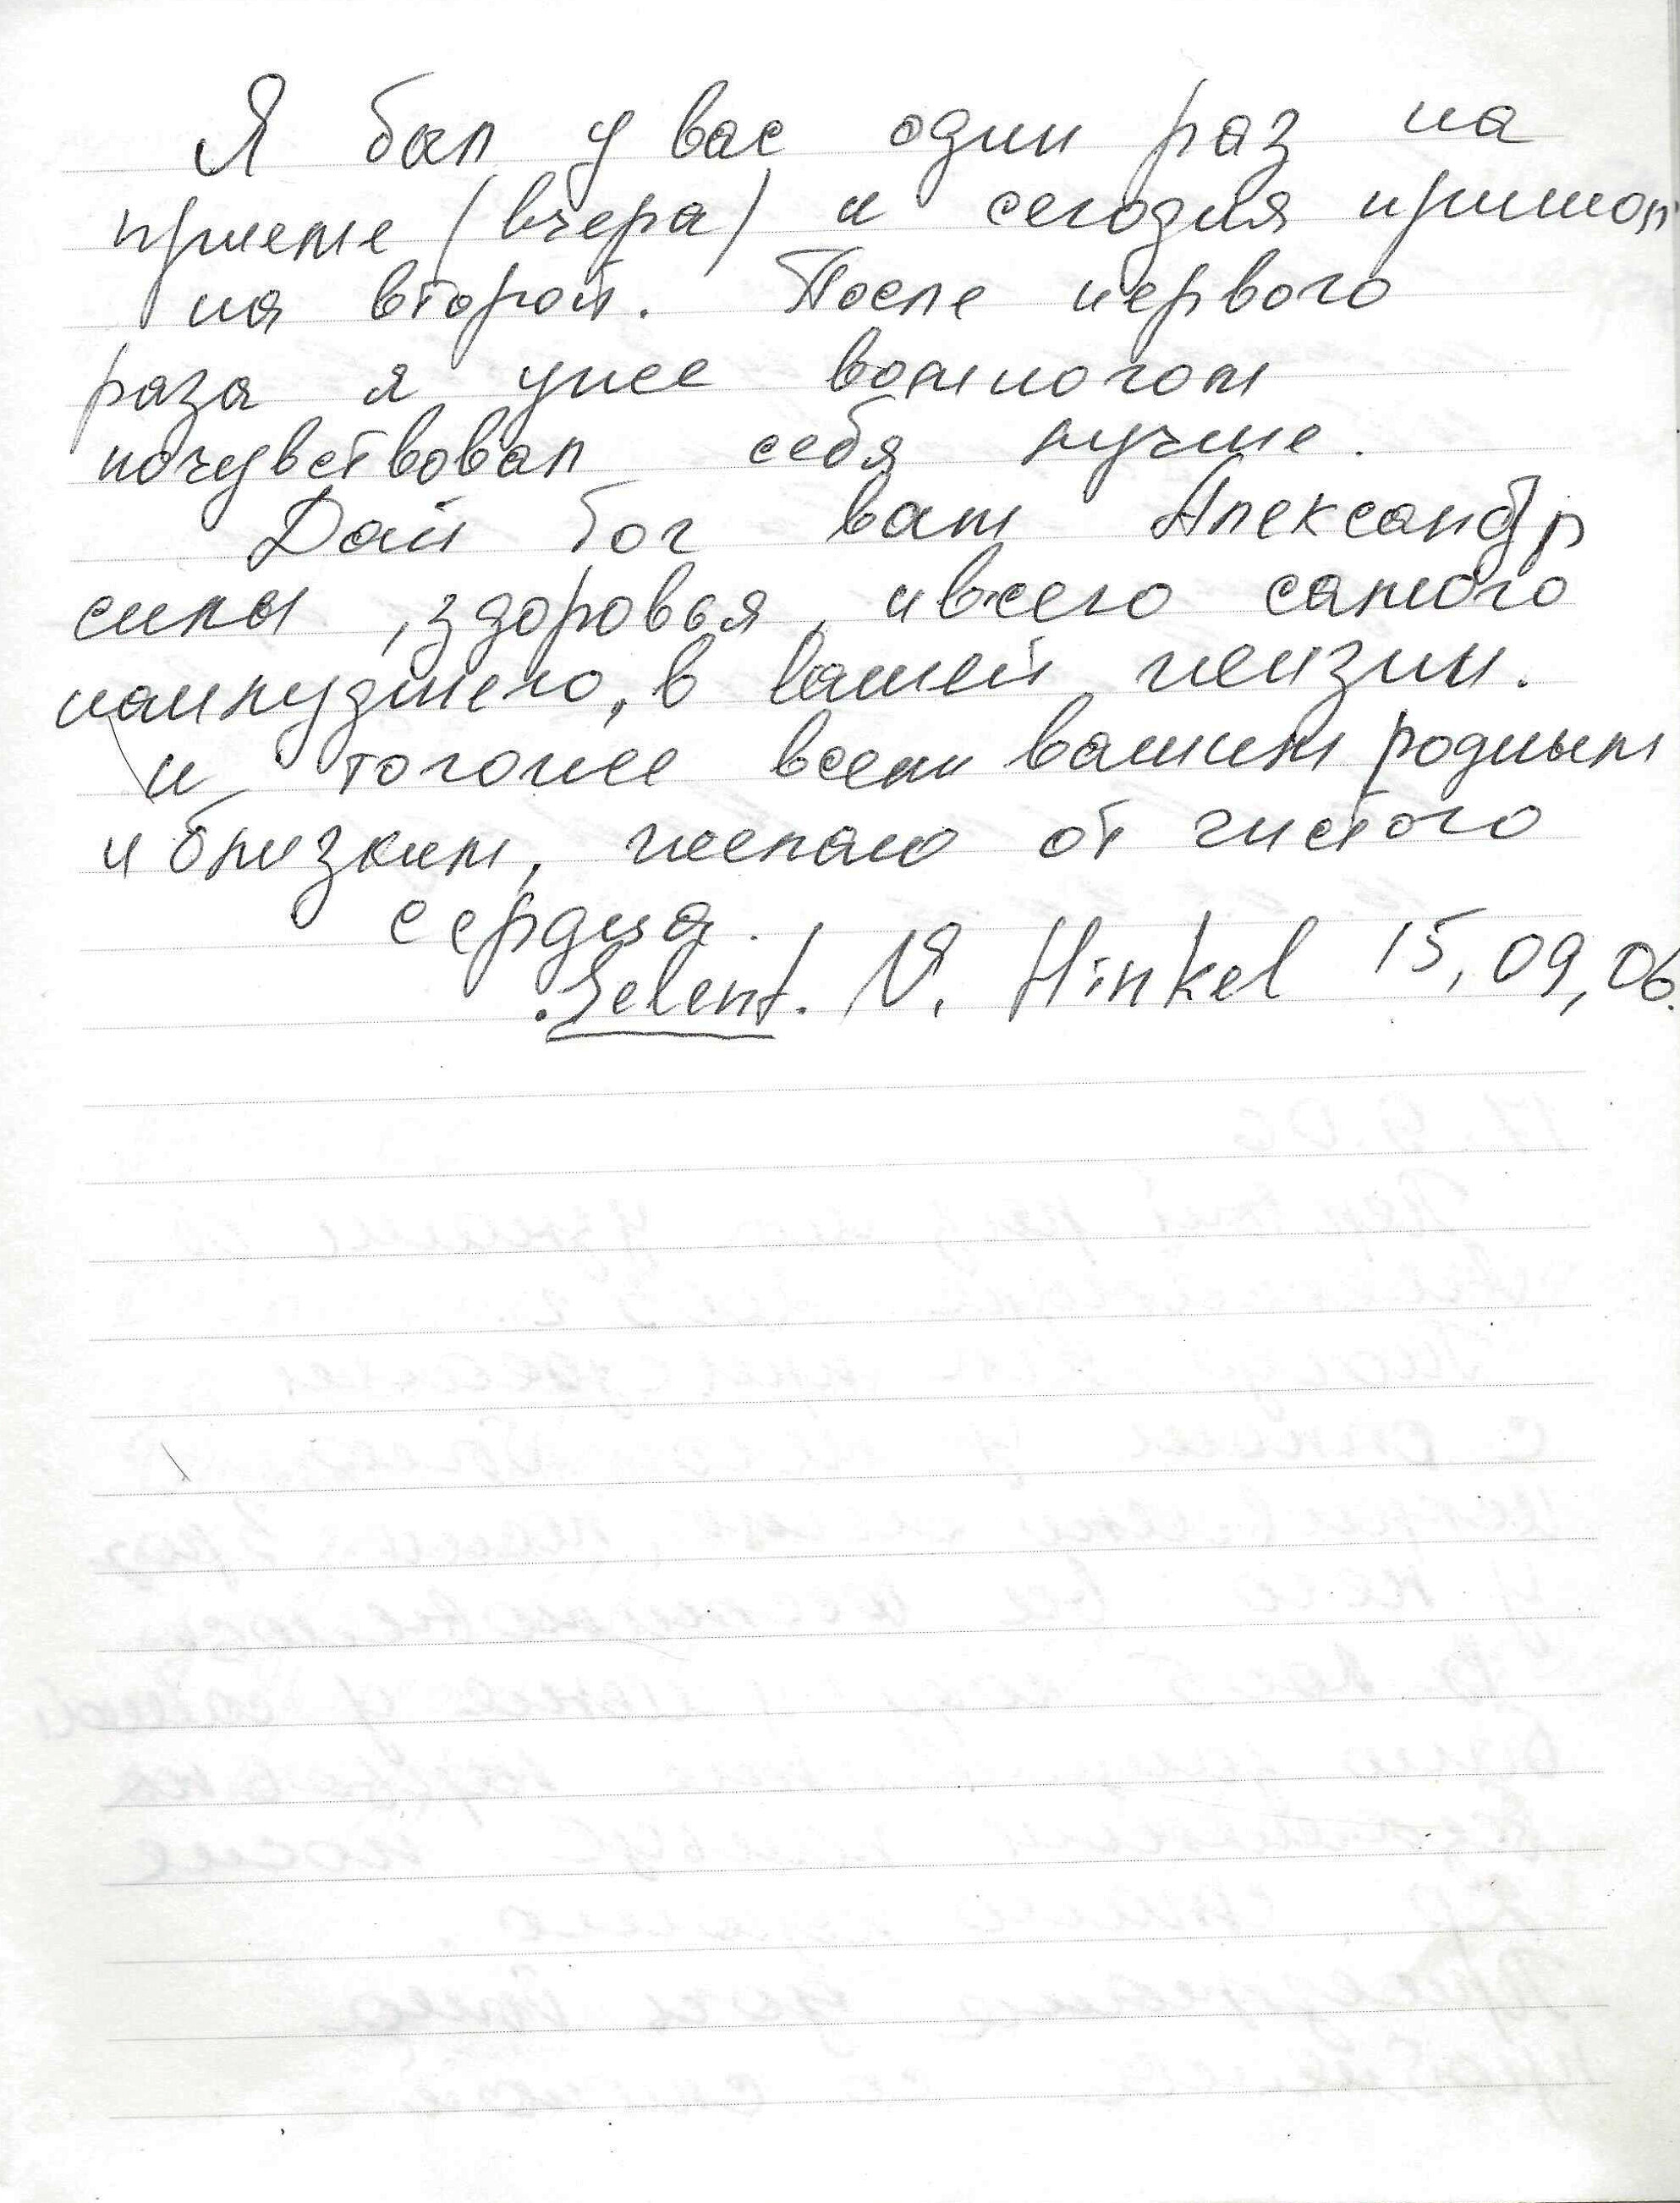 Я был у вас один раз на
приеме (вчера) и сегодня пришол
на второй. После первого
раза я уже вомногом
почувствовал себя лучше.
Дай бог вам Александр
силы, здоровья, ивсего самого
наилудшего, в вашей жизни.
и тогоже всем вашим родным
и близким, желаю от чистого
сердца.
Selent. V. Hinkel 15,09,06.